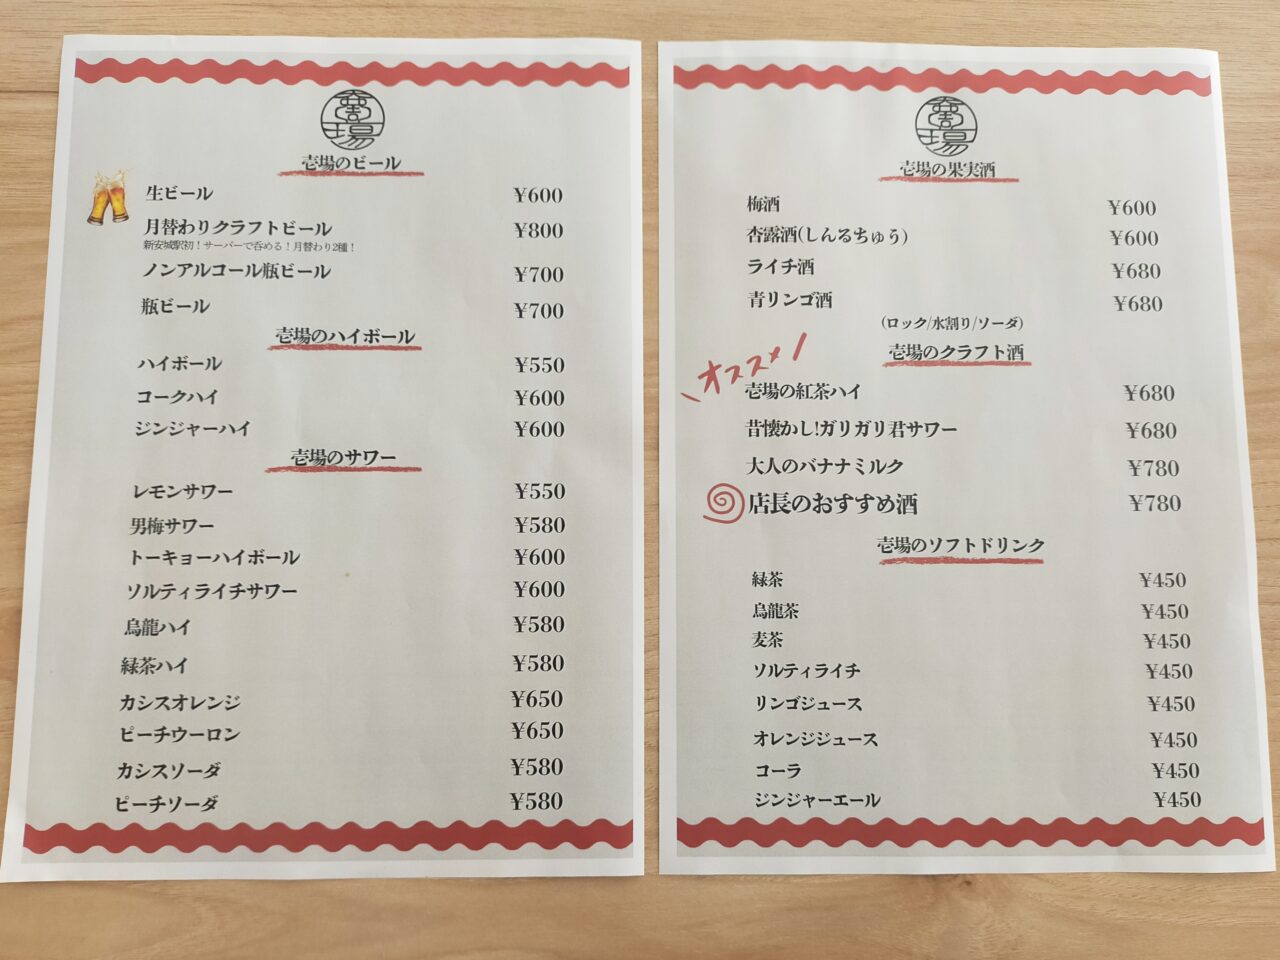 壱場
壱場のビール
生ビール ¥600
月替わりクラフトビール ¥800
新安城駅初！サーバーで呑める！月替わり2種！
ノンアルコール瓶ビール ¥700
瓶ビール ¥700
壱場のハイボール
ハイボール ¥550
コークハイ ¥600
ジンジャーハイ ¥600
壱場のサワー
レモンサワー ¥550
男梅サワー ¥580
トーキョーハイボール ¥600
ソルティライチサワー ¥600
烏龍ハイ ¥580
緑茶ハイ ¥580
カシスオレンジ ¥650
ピーチウーロン ¥650
カシスソーダ ¥580
ピーチソーダ ¥580
壱場
壱場の果実酒
梅酒 ¥600
杏露酒(しんるちゅう) ¥600
ライチ酒 ¥680
青リンゴ酒 ¥680
(ロック/水割り/ソーダ)
壱場のクラフト酒
オススメ
壱場の紅茶ハイ ¥680
昔懐かし!ガリガリ君サワー ¥680
大人のバナナミルク ¥780
店長のおすすめ酒 ¥780
壱場のソフトドリンク
緑茶 ¥450
烏龍茶 ¥450
麦茶 ¥450
ソルティライチ ¥450
リンゴジュース ¥450
オレンジジュース ¥450
コーラ ¥450
ジンジャーエール ¥450